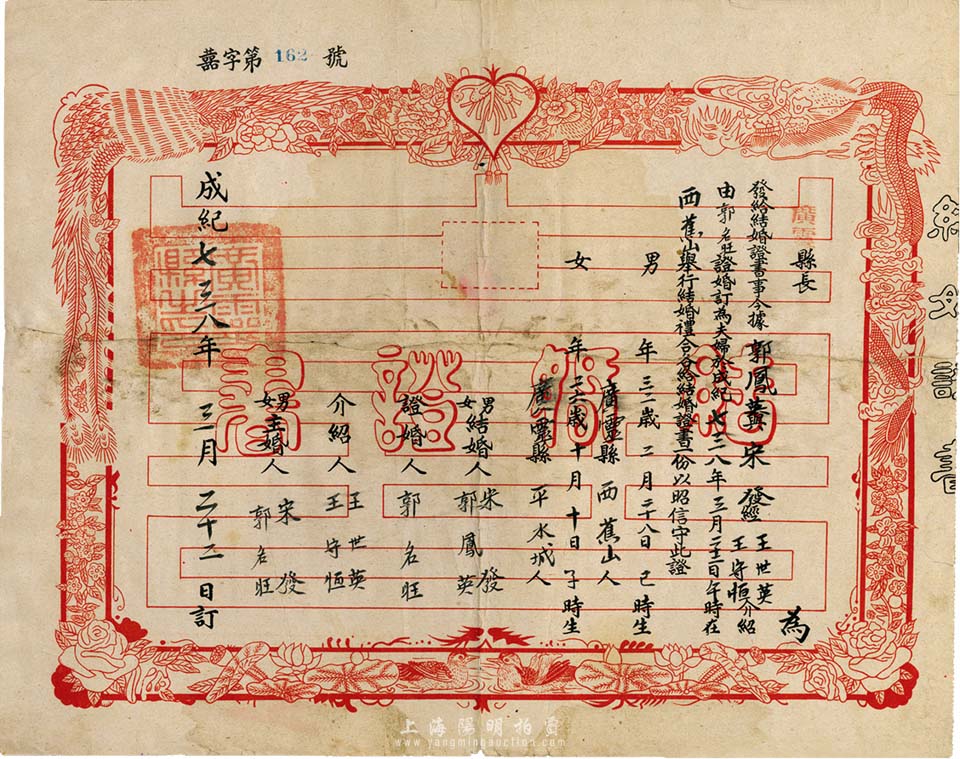 嘉字第 162 號
結婚證書
廣靈
縣長
為
發給結婚證書事今據郭鳳英宋發經王世英王守恒介紹
由郭名旺證婚訂為夫婦於成紀七三八年三月二十二日午時在
西蕉山舉行結婚禮合發給結婚證書一份以昭信守此證
男 年三二歲二月二十八日己時生
廣靈縣西蕉山人
女 年二六歲十月十日子時生
廣靈縣平水城人
男女結婚人 宋發 郭鳳英
證婚人 郭名旺
介紹人 王世英 王守恒
男女主婚人 宋發 郭名旺
成紀七三八年三月二十二日訂
上海陽明拍賣
www.yangmingauction.com